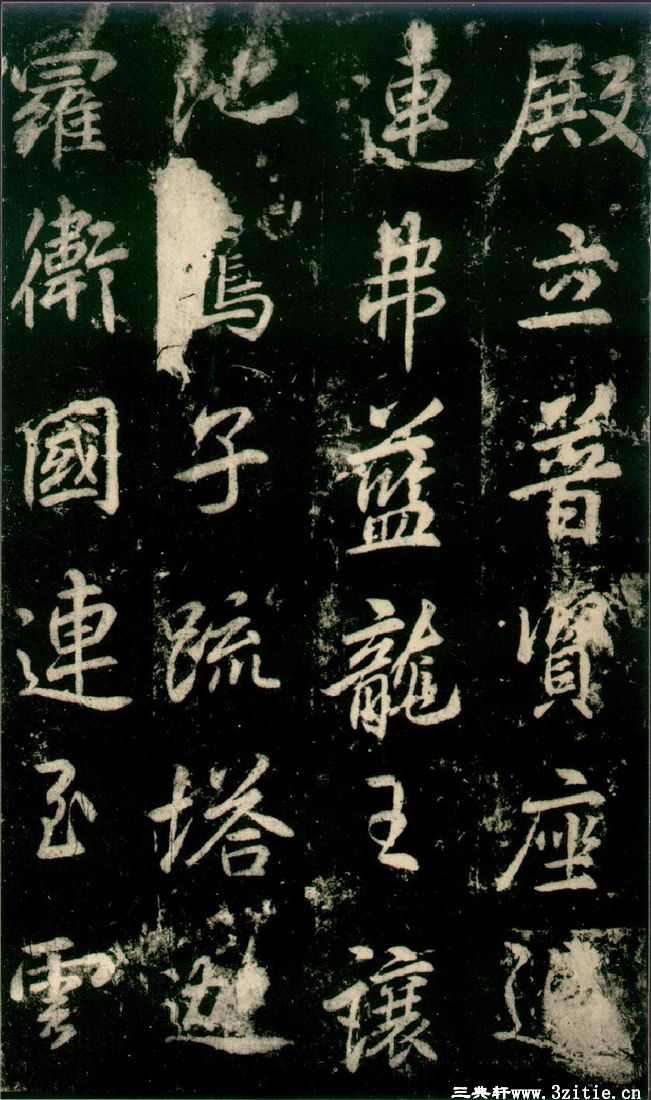 殿立普賢座
連弗藍龍王讓
池子疏塔迦
羅衛國連至雲
三典轩www.3zitie.cn